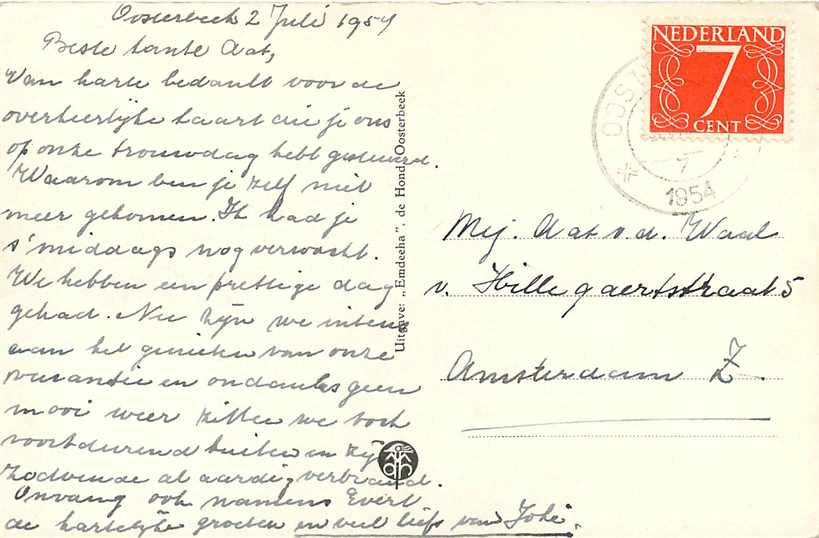 Oosterbeek 2 Juli 1954
Beste tante Aat,
Van harte bedankt voor de
overheerlijke taart die je ons
op onze trouwdag hebt gestuurd.
Waarom ben je zelf niet
meer gekomen. Ik had je
s'middags nog verwacht.
We hebben een prettige dag
gehad. Nu zijn we intens
aan het genieten van onze
vacantie en ondanks geen
mooi weer zitten we toch
voortdurend buiten en zijn
zodoende al aardig verbrand.
Onvang ook namens Evert
de hartelijke groeten en veel liefs van Johi.
Uitgave: „Emdeeha", de Hond, Oosterbeek
NEDERLAND
7
CENT
OOST
7
1954
Mej. Aat v.d. Waal
v. Hillegaertstraat 5
Amsterdam Z.